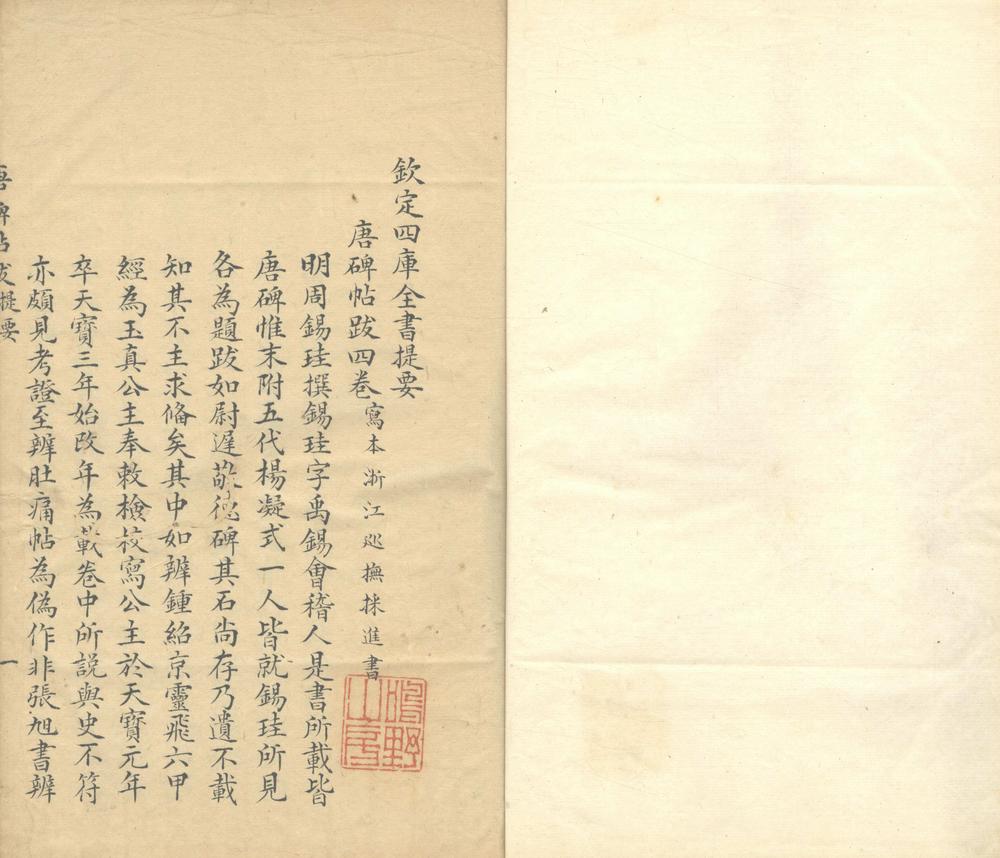 欽定四庫全書提要
唐碑帖跋四卷寫本浙江巡撫採進書
明周錫珪撰錫珪字禹錫會稽人是書所載皆
唐碑惟末附五代楊凝式一人皆就錫珪所見
各為題跋如尉遲敬德碑其石尚存乃遺不載
知其不主求備矣其中如辨鍾紹京靈飛六甲
經為玉真公主奉敕檢校寫公主於天寶元年
卒天寶三年始改年為載卷中所說與史不符
亦頗見考證至辨肚痛帖為偽作非張旭書辨
唐碑帖跋提要
一
鳴野山房